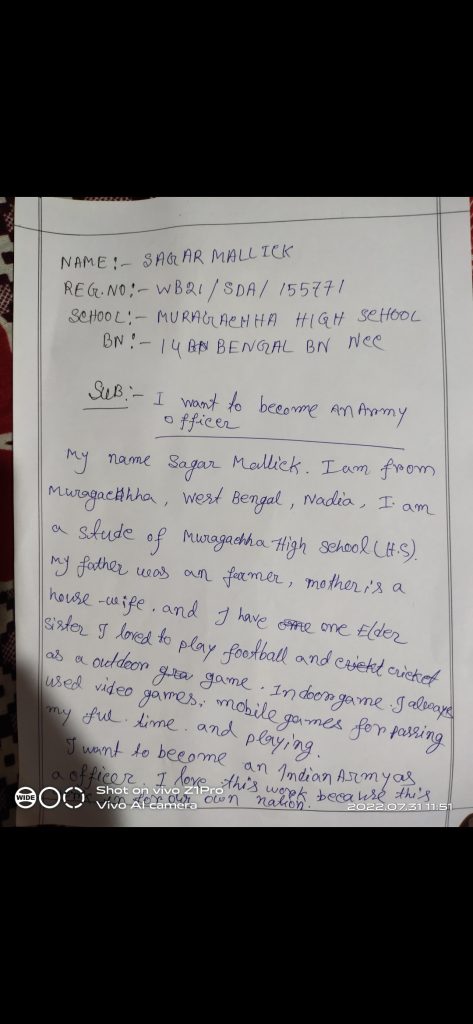 NAME:- SAGAR MALLICK
REG.NO:- WB21/SDA/155771
SCHOOL:- MURAGACHHA HIGH SCHOOL
BN:- 14 BENGAL BN NCC
SUB:- I want to become an Army
officer
My name Sagar Mallick. I am from
Muragachhha, West Bengal, Nadia, I am
a stude of Muragachha High school (H.S).
my father was an farmer, mother is a
house-wife. and I have one Elder
sister I loved to play football and cricket
as a outdoor game. Indoor game. I always
used video games, mobile games for passing
my ful time. and playing.
I want to become an Indian Army as
a officer. I love this work because this
for our own nation.
WIDE
Shot on vivo Z1Pro
Vivo AI camera
2022.07.31 11:51